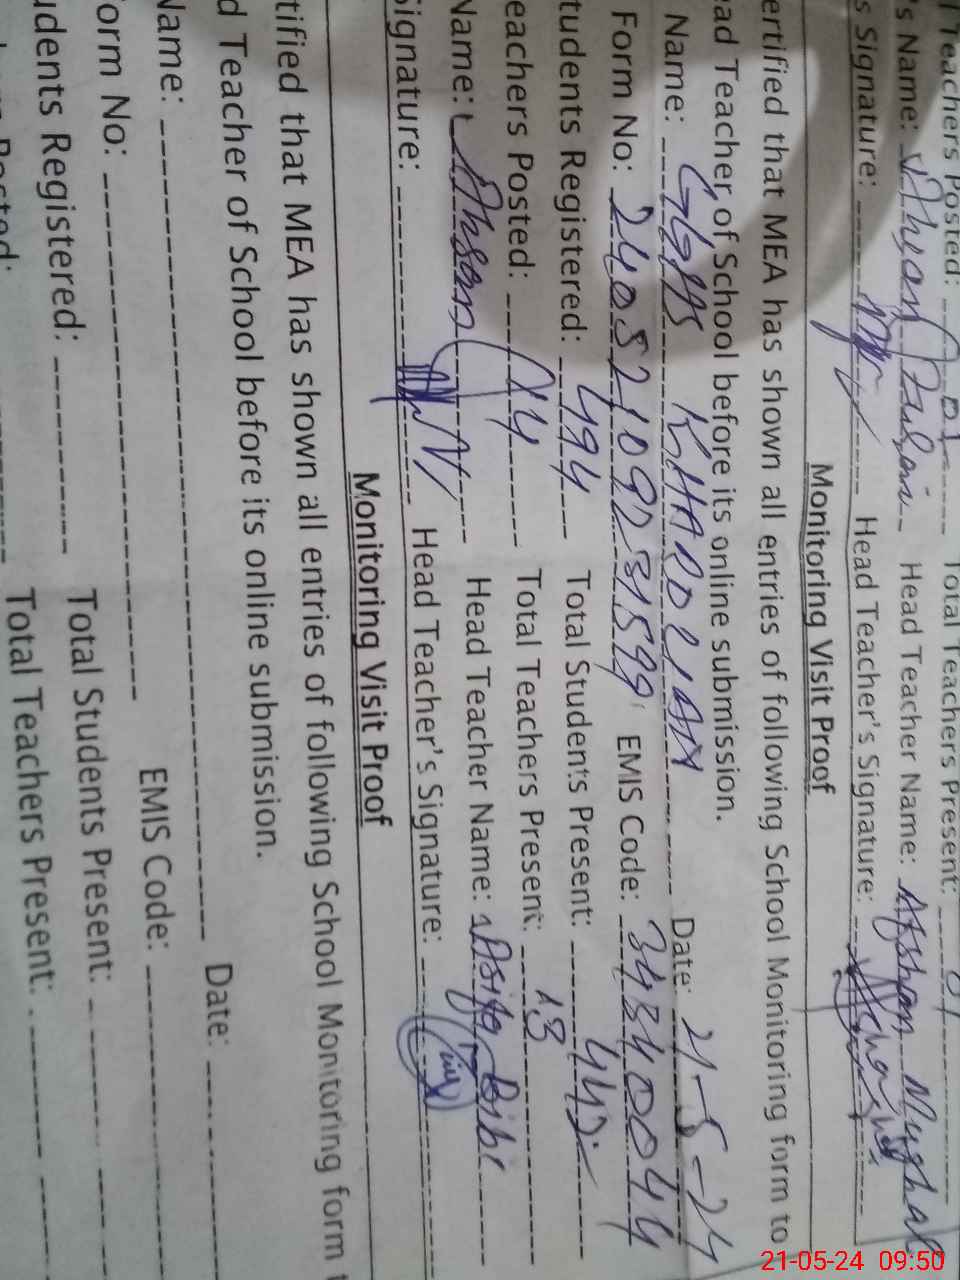 Teachers Posted: 01 Total Teachers Present: 01
's Name: Head Teacher Name: Afshan Mughal
s Signature: Head Teacher's Signature:
Monitoring Visit Proof
ertified that MEA has shown all entries of following School Monitoring form to
ead Teacher of School before its online submission.
Name: GGHS Date: 21-5-24
Form No: EMIS Code: 34340044
tudents Registered: 494 Total Students Present: 442
eachers Posted: 14 Total Teachers Present: 13
Name: Ahsan Head Teacher Name: Asiya Bibi
Signature: Head Teacher's Signature:
Monitoring Visit Proof
tified that MEA has shown all entries of following School Monitoring form t
d Teacher of School before its online submission.
Name: Date:
orm No: EMIS Code:
udents Registered: Total Students Present:
Posted: Total Teachers Present:
21-05-24 09:50